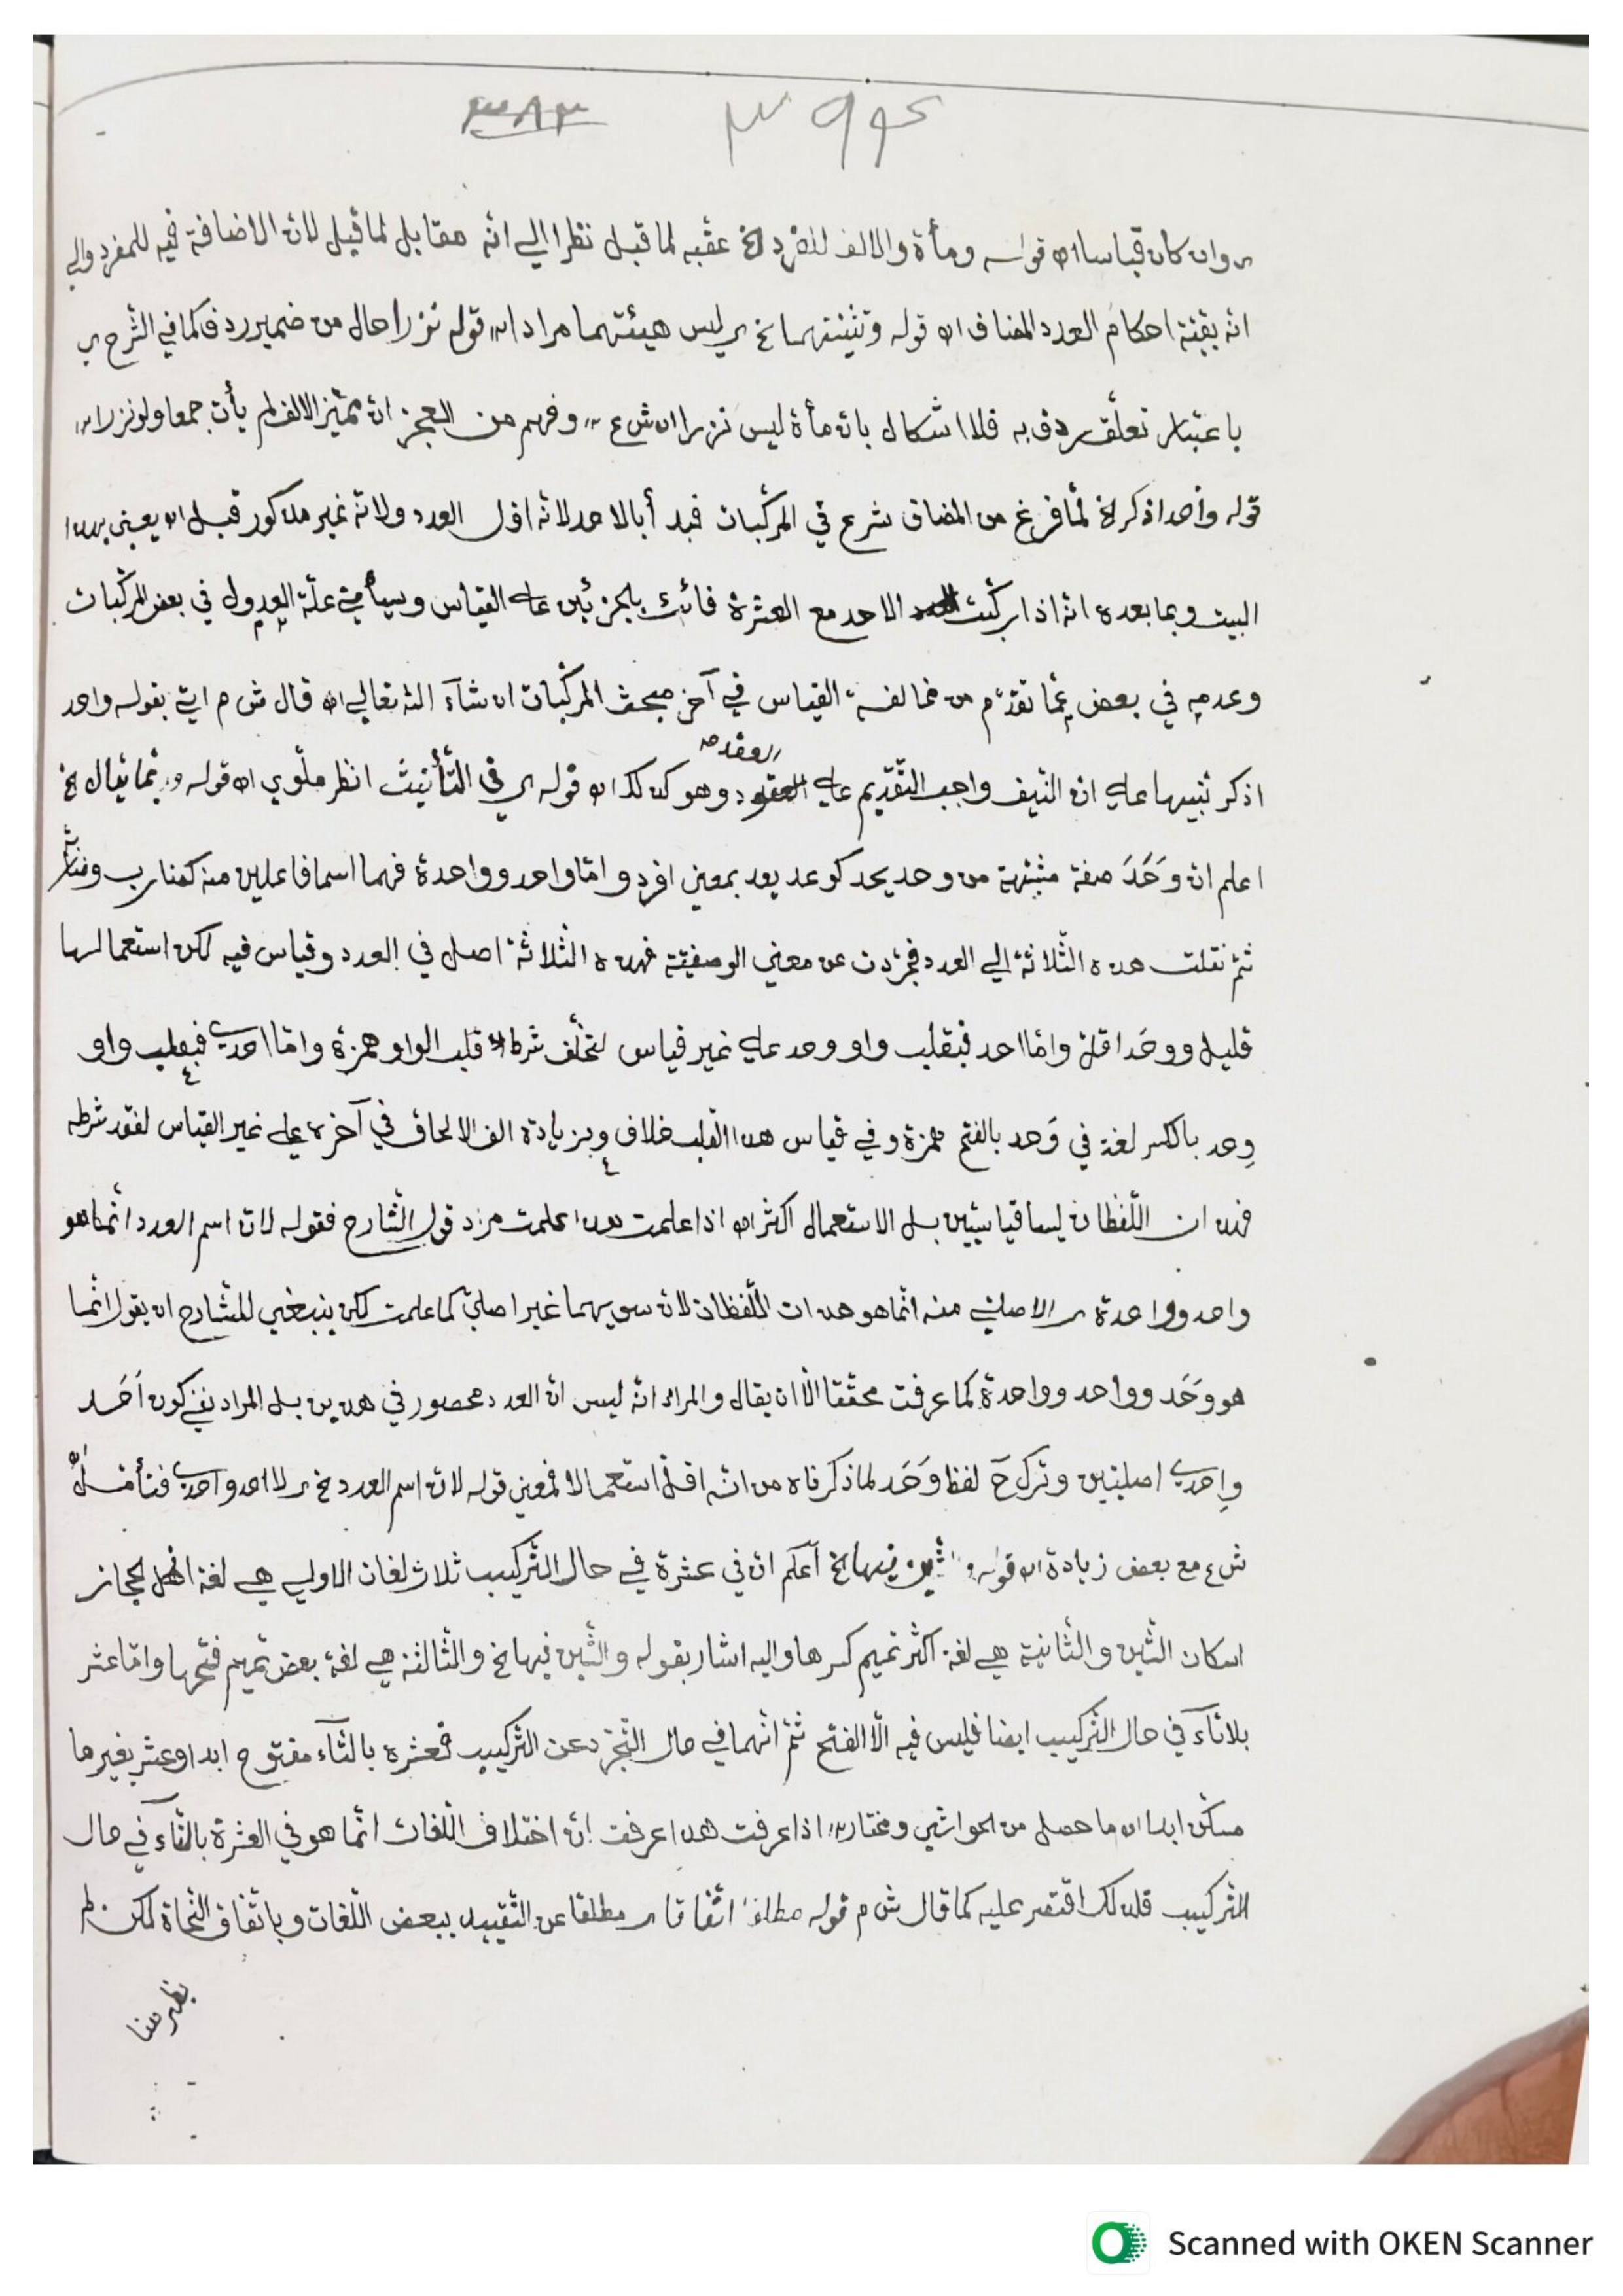 ٣٨٣ ٣٩٤
وان كان قياسا اه قوله ومأة والالف للفرد الخ عقبه لما قبل نظرا الي انّه مقابل لما قبل لانّ الاضافة فيه للمفرد والي
انّه بقيّة احكام العدد المضاف اه قوله وتثنيتهما الخ ليس هيئتهما مرادا اه قوله نزرا حال من ضمير ردف كما في الشّرح اي
باعتبار تعلّق ردف به فلا اشكال بانّ مأة ليس نزرا اه ش ع وفهم من العجز انّ مميّز الالف لم يأت جمعا ولو نزرا اه
قوله وأحد اذكر الخ لمّا فرغ من المضاف شرع في المركّبات فبدأ بالاحد لانّه اوّل العدد ولانّه غير مذكور قبل اه يعني بهذا
البيت وبما بعده انّه اذا ركّبت الاحد مع العشرة فائت بالجزئين علي القياس وسيأتي علّة العدول في بعض المركّبات
وعدمه في بعض عمّا تقدّم من مخالفة القياس في آخر مبحث المركّبات ان شآء الله تعالي اه قال ش م اتي بقوله واحد
اذكر تنبيها علي انّ النّيف واجب التّقديم علي العقد وهو كذلك اه قوله اي في التّأنيث انظر ملّوي اه قوله وربّما يقال الخ
اعلم انّ وَحَدَ صفة مشبّهة من وحد يحد كوعد يعد بمعني افرد وامّا واحد وواحدة فهما اسما فاعلين منه كضارب وضاربة
ثمّ نقلت هذه الثّلاثة الي العدد فجرّدت عن معني الوصفيّة فهذه الثّلاثة اصل في العدد وقياس فيه لكن استعمالها
قليل ووحَد اقلّ وامّا احد فبقلب واو وحد علي غير قياس لتخلّف شرط قلب الواو همزة وامّا احدي فبقلب واو
وِحد بالكسر لغة في وَحد بالفتح همزة وفي قياس هذا القلب خلاف وبزيادة الف الالحاق في آخره علي غير القياس لفقد شرطه
فهذان اللّفظان ليسا قياسيّين بل الاستعمال اكثر اه اذا علمت هذا علمت مراد قول الشّارح فقوله لانّ اسم العدد انّما هو
واحد وواحدة اي الاصليّ منه انّما هو هذان اللّفظان لانّ سويهما غير اصليّ كما علمت لكن ينبغي للشّارح ان يقول انّما
هو وَحَد وواحد وواحدة كما عرفت محقّقا الّا ان يقال والمراد انّه ليس انّ العدد محصور في هذين بل المراد نفي كون اَحَد
واِحدي اصليّين وترك ح لفظ وَحَد لما ذكرناه من انّه اقلّ استعمالا فمعني قوله لانّ اسم العدد الخ اي لا احد واحدي فتأمّله
ش ع مع بعض زيادة اه قوله والشّين فيها الخ اعلم انّ في عشرة في حال التّركيب ثلاث لغات الاولي هي لغة اهل الحجاز
اسكان الشّين والثّانية هي لغة اكثر تميم كسرها واليه اشار بقوله والشّين فيها الخ والثّالثة هي لغة بعض تميم فتحها وامّا عشر
بلا تآء في حال التّركيب ايضا فليس فيه الّا الفتح ثمّ انّهما في حال التّجرّد عن التّركيب فعشرة بالتّآء مفتوح ابدا وعشر بغيرها
مسكّن ابدا اه ما حصل من الحواشي ومختار اه اذا عرفت هذا عرفت انّ اختلاف اللّغات انّما هو في العشرة بالتّآء في حال
التّركيب فلذلك اقتصر عليه كما قال ش م قوله مطلقا اتّفاقا اي مطلقا عن التّقييد ببعض اللّغات وباتّفاق النّحاة لكن لم
يظهر هنا
Scanned with OKEN Scanner